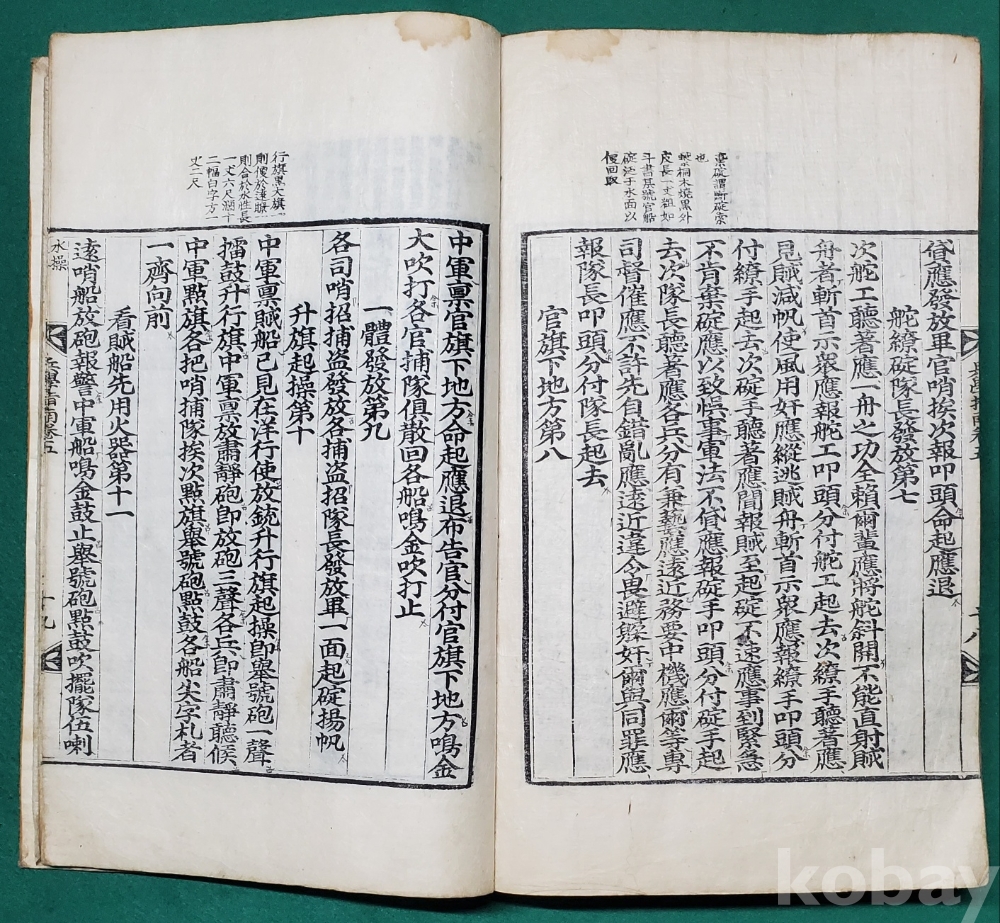 貸應發放畢官哨挨次報叩頭命起應退
舵繚碇隊長發放第七
次舵工聽著應一舟之功全賴爾輩應將舵斜開不能直射賊
舟者斬首示衆應報舵工叩頭分付舵工起去次繚手聽著應
見賊減帆使風用奸應縱逃賊舟斬首示衆應報繚手叩頭分
付繚手起去次碇手聽著應聞報賊至起碇不速應事到緊急
不肯棄碇應以致悞事軍法不貸應報碇手叩頭分付碇手起
去次隊長聽著應各兵分有兼執應遠近務要中機應爾等專
司督催應不許先自錯亂應遠近違令畏避縱奸爾與同罪應
報隊長叩頭分付隊長起去
官旗下地方第八
棄碇謂斷碇索
也
繫桐木燒黑外
皮長一丈粗如
斗書某號官船
碇泛于水面以
便回取
中軍稟官旗下地方命起應退布告官分付官旗下地方鳴金
大吹打各官捕隊俱散回各船鳴金吹打止
一體發放第九
各司哨招捕盜發放各捕盜招隊長發放畢一面起碇揚帆
升旗起操第十
中軍稟賊船已見在洋行使放銃升行旗起操卽舉號砲一聲
擂鼓升行旗中軍稟放肅靜砲卽放砲三聲各兵卽肅靜聽候
中軍點旗各把哨捕隊挨次點旗舉號砲點鼓各船尖字札者
一齊向前
看賊船先用火器第十一
遠哨船放砲報警中軍船鳴金鼓止舉號砲點鼓吹擺隊伍喇
行旗黑大旗一
則便於遠瞭一
則合於水性長
一丈六尺濶十
二幅白字方一
丈二尺
水操
兵學指南卷五
十九
kobay